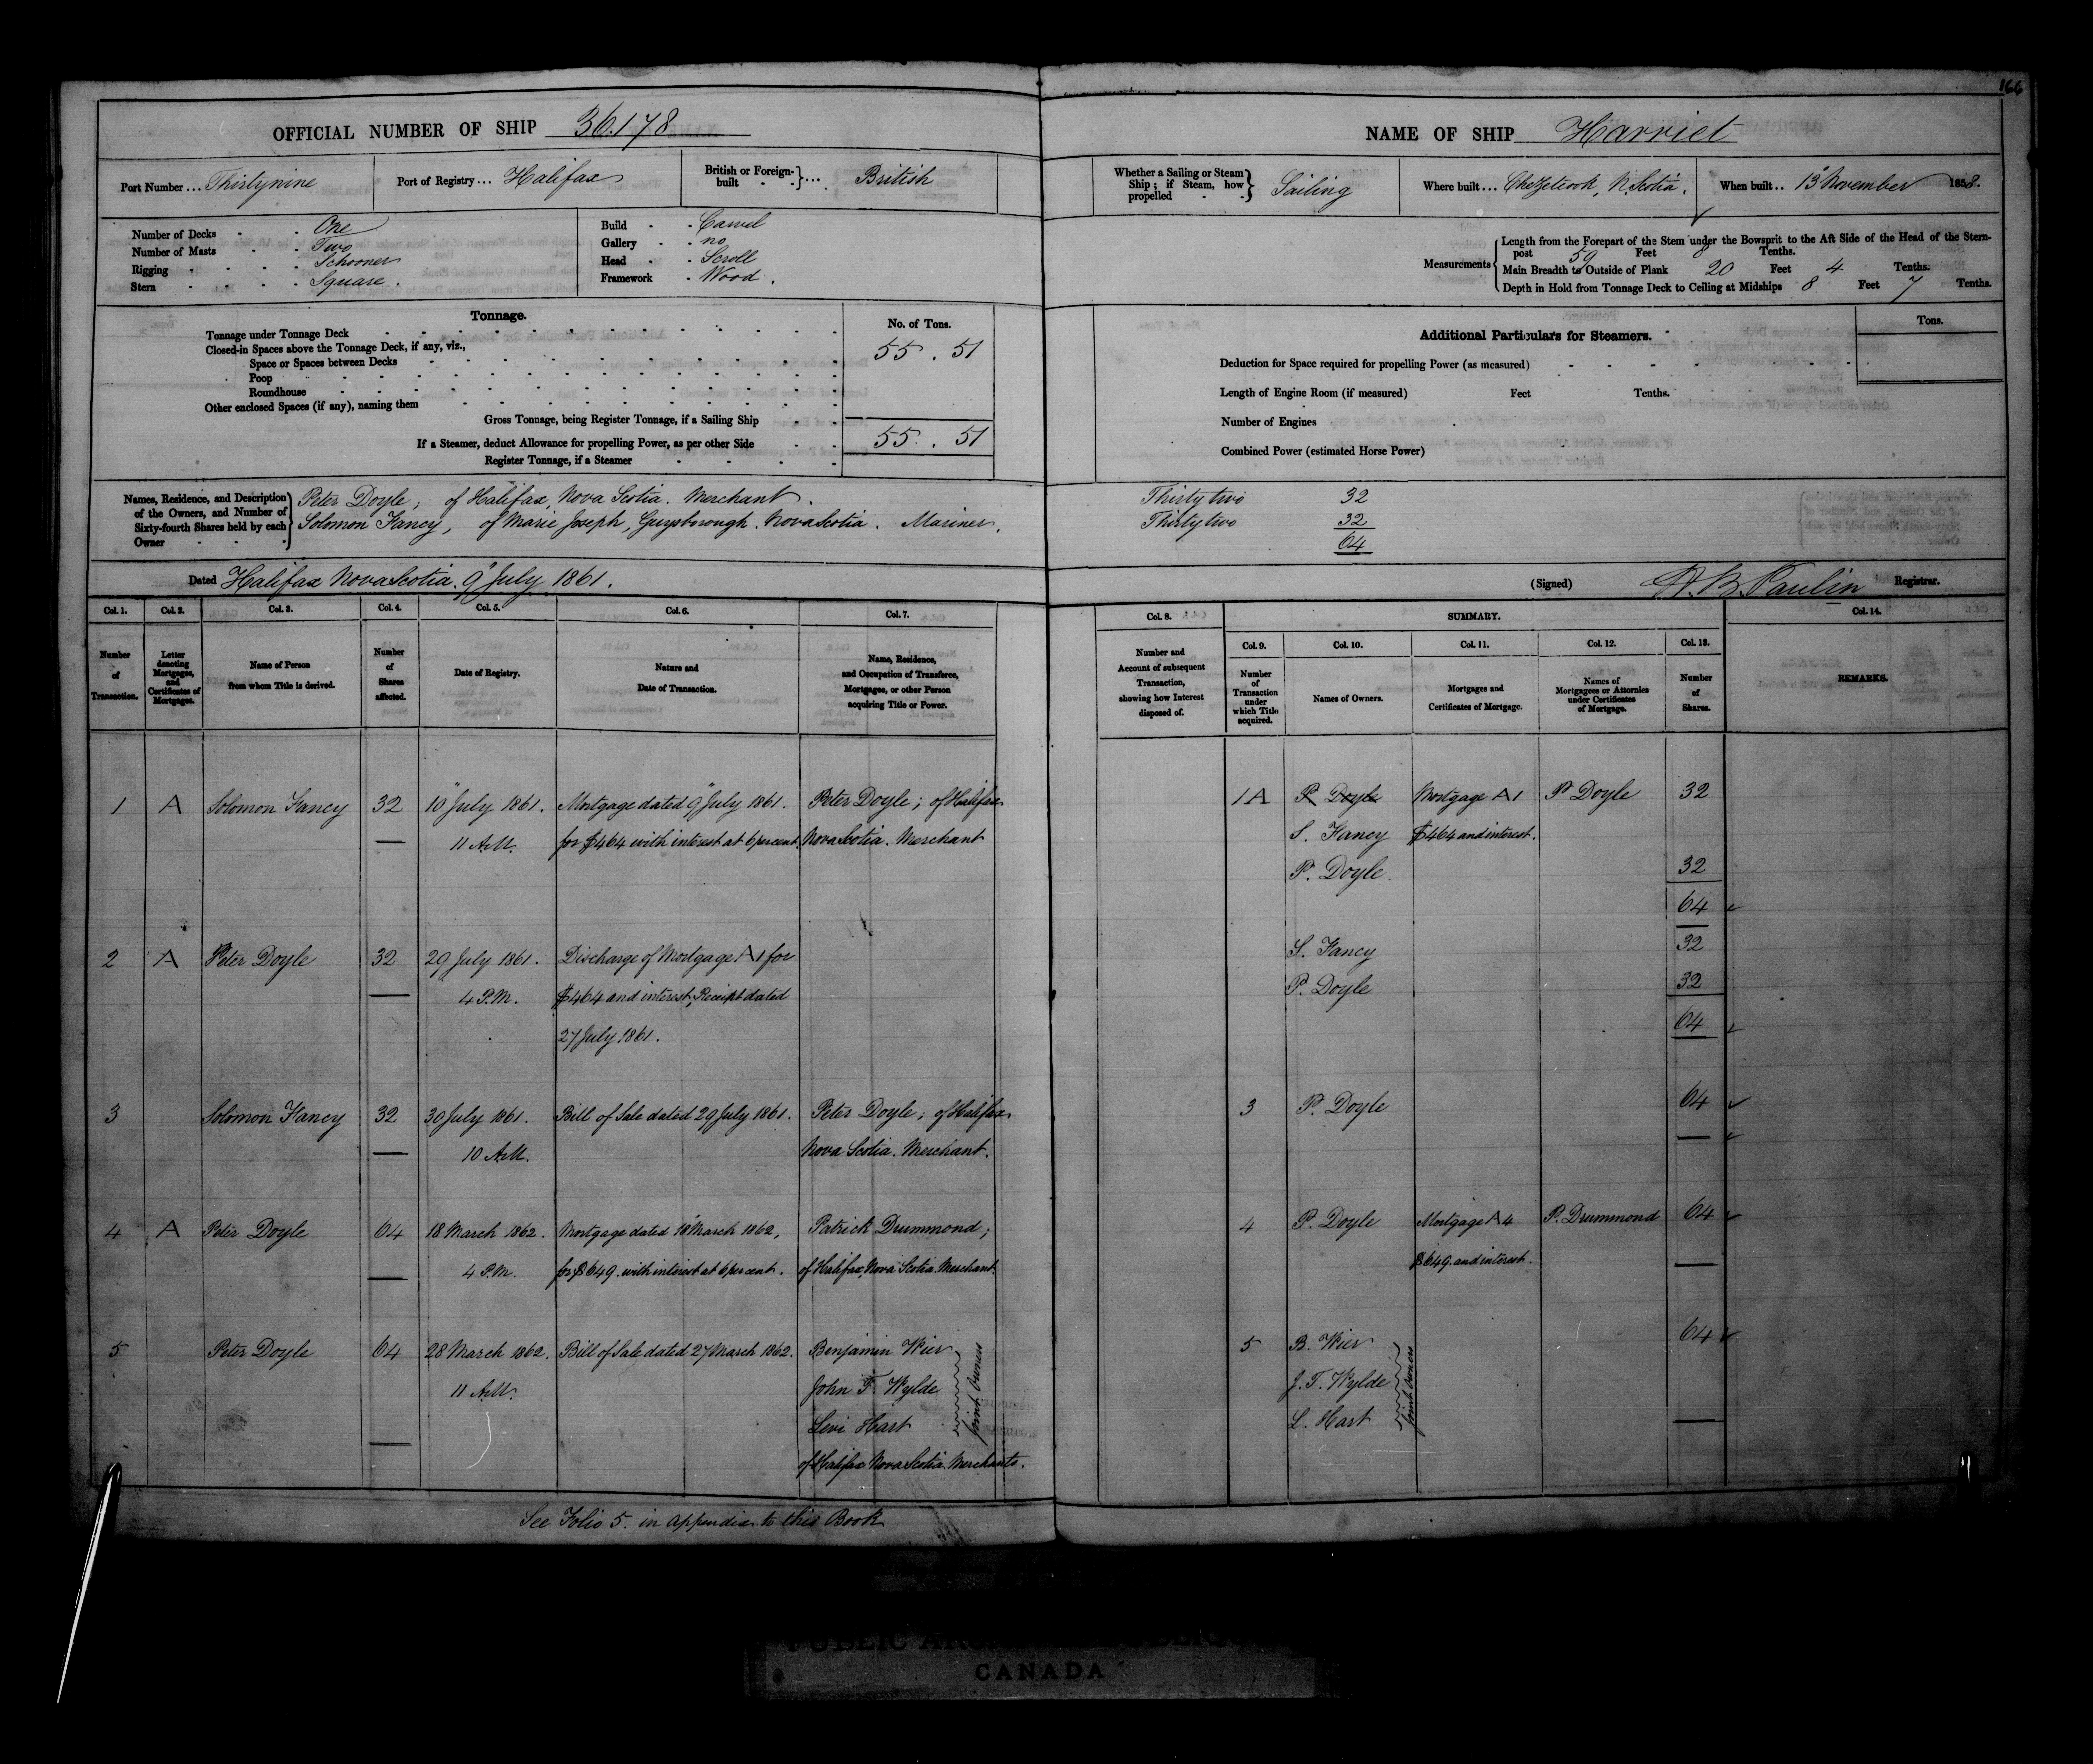 166
OFFICIAL NUMBER OF SHIP 36.178
Port Number ... Thirtynine
Port of Registry ... Halifax
British or Foreign-built } ... British
Number of Decks - - One
Number of Masts - - Two
Rigging - - - - Schooner
Stern - - - - Square.
Build - - Carvel
Gallery - - no
Head - - Scroll
Framework - Wood.
Tonnage.
No. of Tons.
Tonnage under Tonnage Deck
Closed-in Spaces above the Tonnage Deck, if any, viz.,
55 . 51
Space or Spaces between Decks
Poop
Roundhouse
Other enclosed Spaces (if any), naming them
Gross Tonnage, being Register Tonnage, if a Sailing Ship
If a Steamer, deduct Allowance for propelling Power, as per other Side
55 . 51
Register Tonnage, if a Steamer
Names, Residence, and Description of the Owners, and Number of Sixty-fourth Shares held by each Owner
Peter Doyle; of Halifax, Nova Scotia. Merchant.
Solomon Fancy, of Marie Joseph, Guysborough. Nova Scotia. Mariner.
Dated Halifax Nova Scotia. 9" July 1861.
NAME OF SHIP Harriet
Whether a Sailing or Steam Ship; if Steam, how propelled } Sailing
Where built ... Chezetcook, N. Scotia.
When built .. 13" November 1858.
Measurements
Length from the Forepart of the Stem under the Bowsprit to the Aft Side of the Head of the Stern-
post 59 Feet 8 Tenths.
Main Breadth to Outside of Plank 20 Feet 4 Tenths.
Depth in Hold from Tonnage Deck to Ceiling at Midships 8 Feet 7 Tenths.
Additional Particulars for Steamers.
Tons.
Deduction for Space required for propelling Power (as measured)
Length of Engine Room (if measured) Feet Tenths.
Number of Engines
Combined Power (estimated Horse Power)
Thirty two 32
Thirty two 32
64
(Signed) Paulin Registrar.
Col. 1. Col. 2. Col. 3. Col. 4. Col. 5. Col. 6. Col. 7.
Number of Transaction.
Letter denoting Mortgages, and Certificates of Mortgages.
Name of Person from whom Title is derived.
Number of Shares affected.
Date of Registry.
Nature and Date of Transaction.
Name, Residence, and Occupation of Transferee, Mortgagee, or other Person acquiring Title or Power.
1 A Solomon Fancy 32 10" July 1861. Mortgage dated 9" July 1861. Peter Doyle; of Halifax
11 A.M. for $464 with interest at 6 percent. Nova Scotia. Merchant
2 A Peter Doyle 32 29 July 1861. Discharge of Mortgage A1 for
4 P.M. $464 and interest, Receipt dated
27 July 1861.
3 Solomon Fancy 32 30 July 1861. Bill of Sale dated 29 July 1861. Peter Doyle; of Halifax
10 A.M. Nova Scotia. Merchant.
4 A Peter Doyle 64 18 March 1862. Mortgage dated 18" March 1862, Patrick Drummond;
4 P.M. for $649. with interest at 6 percent. of Halifax, Nova Scotia. Merchant.
5 Peter Doyle 64 28 March 1862. Bill of Sale dated 27 March 1862. Benjamin Wier
11 A.M. John T. Wylde
Levi Hart
Joint Owners
of Halifax Nova Scotia. Merchants.
See Folio 5. in appendix to this Book
Col. 8.
SUMMARY.
Col. 14.
Col. 9. Col. 10. Col. 11. Col. 12. Col. 13.
Number and Account of subsequent Transaction, showing how Interest disposed of.
Number of Transaction under which Title acquired.
Names of Owners.
Mortgages and Certificates of Mortgage.
Names of Mortgagees or Attornies under Certificates of Mortgage.
Number of Shares.
REMARKS.
1A P. Doyle Mortgage A1 P. Doyle 32
S. Fancy $464 and interest.
P. Doyle 32
64
S. Fancy 32
P. Doyle 32
64
3 P. Doyle 64
4 P. Doyle Mortgage A4 P. Drummond 64
$649. and interest.
5 B. Wier 64
J. T. Wylde
L. Hart
Joint Owners
CANADA